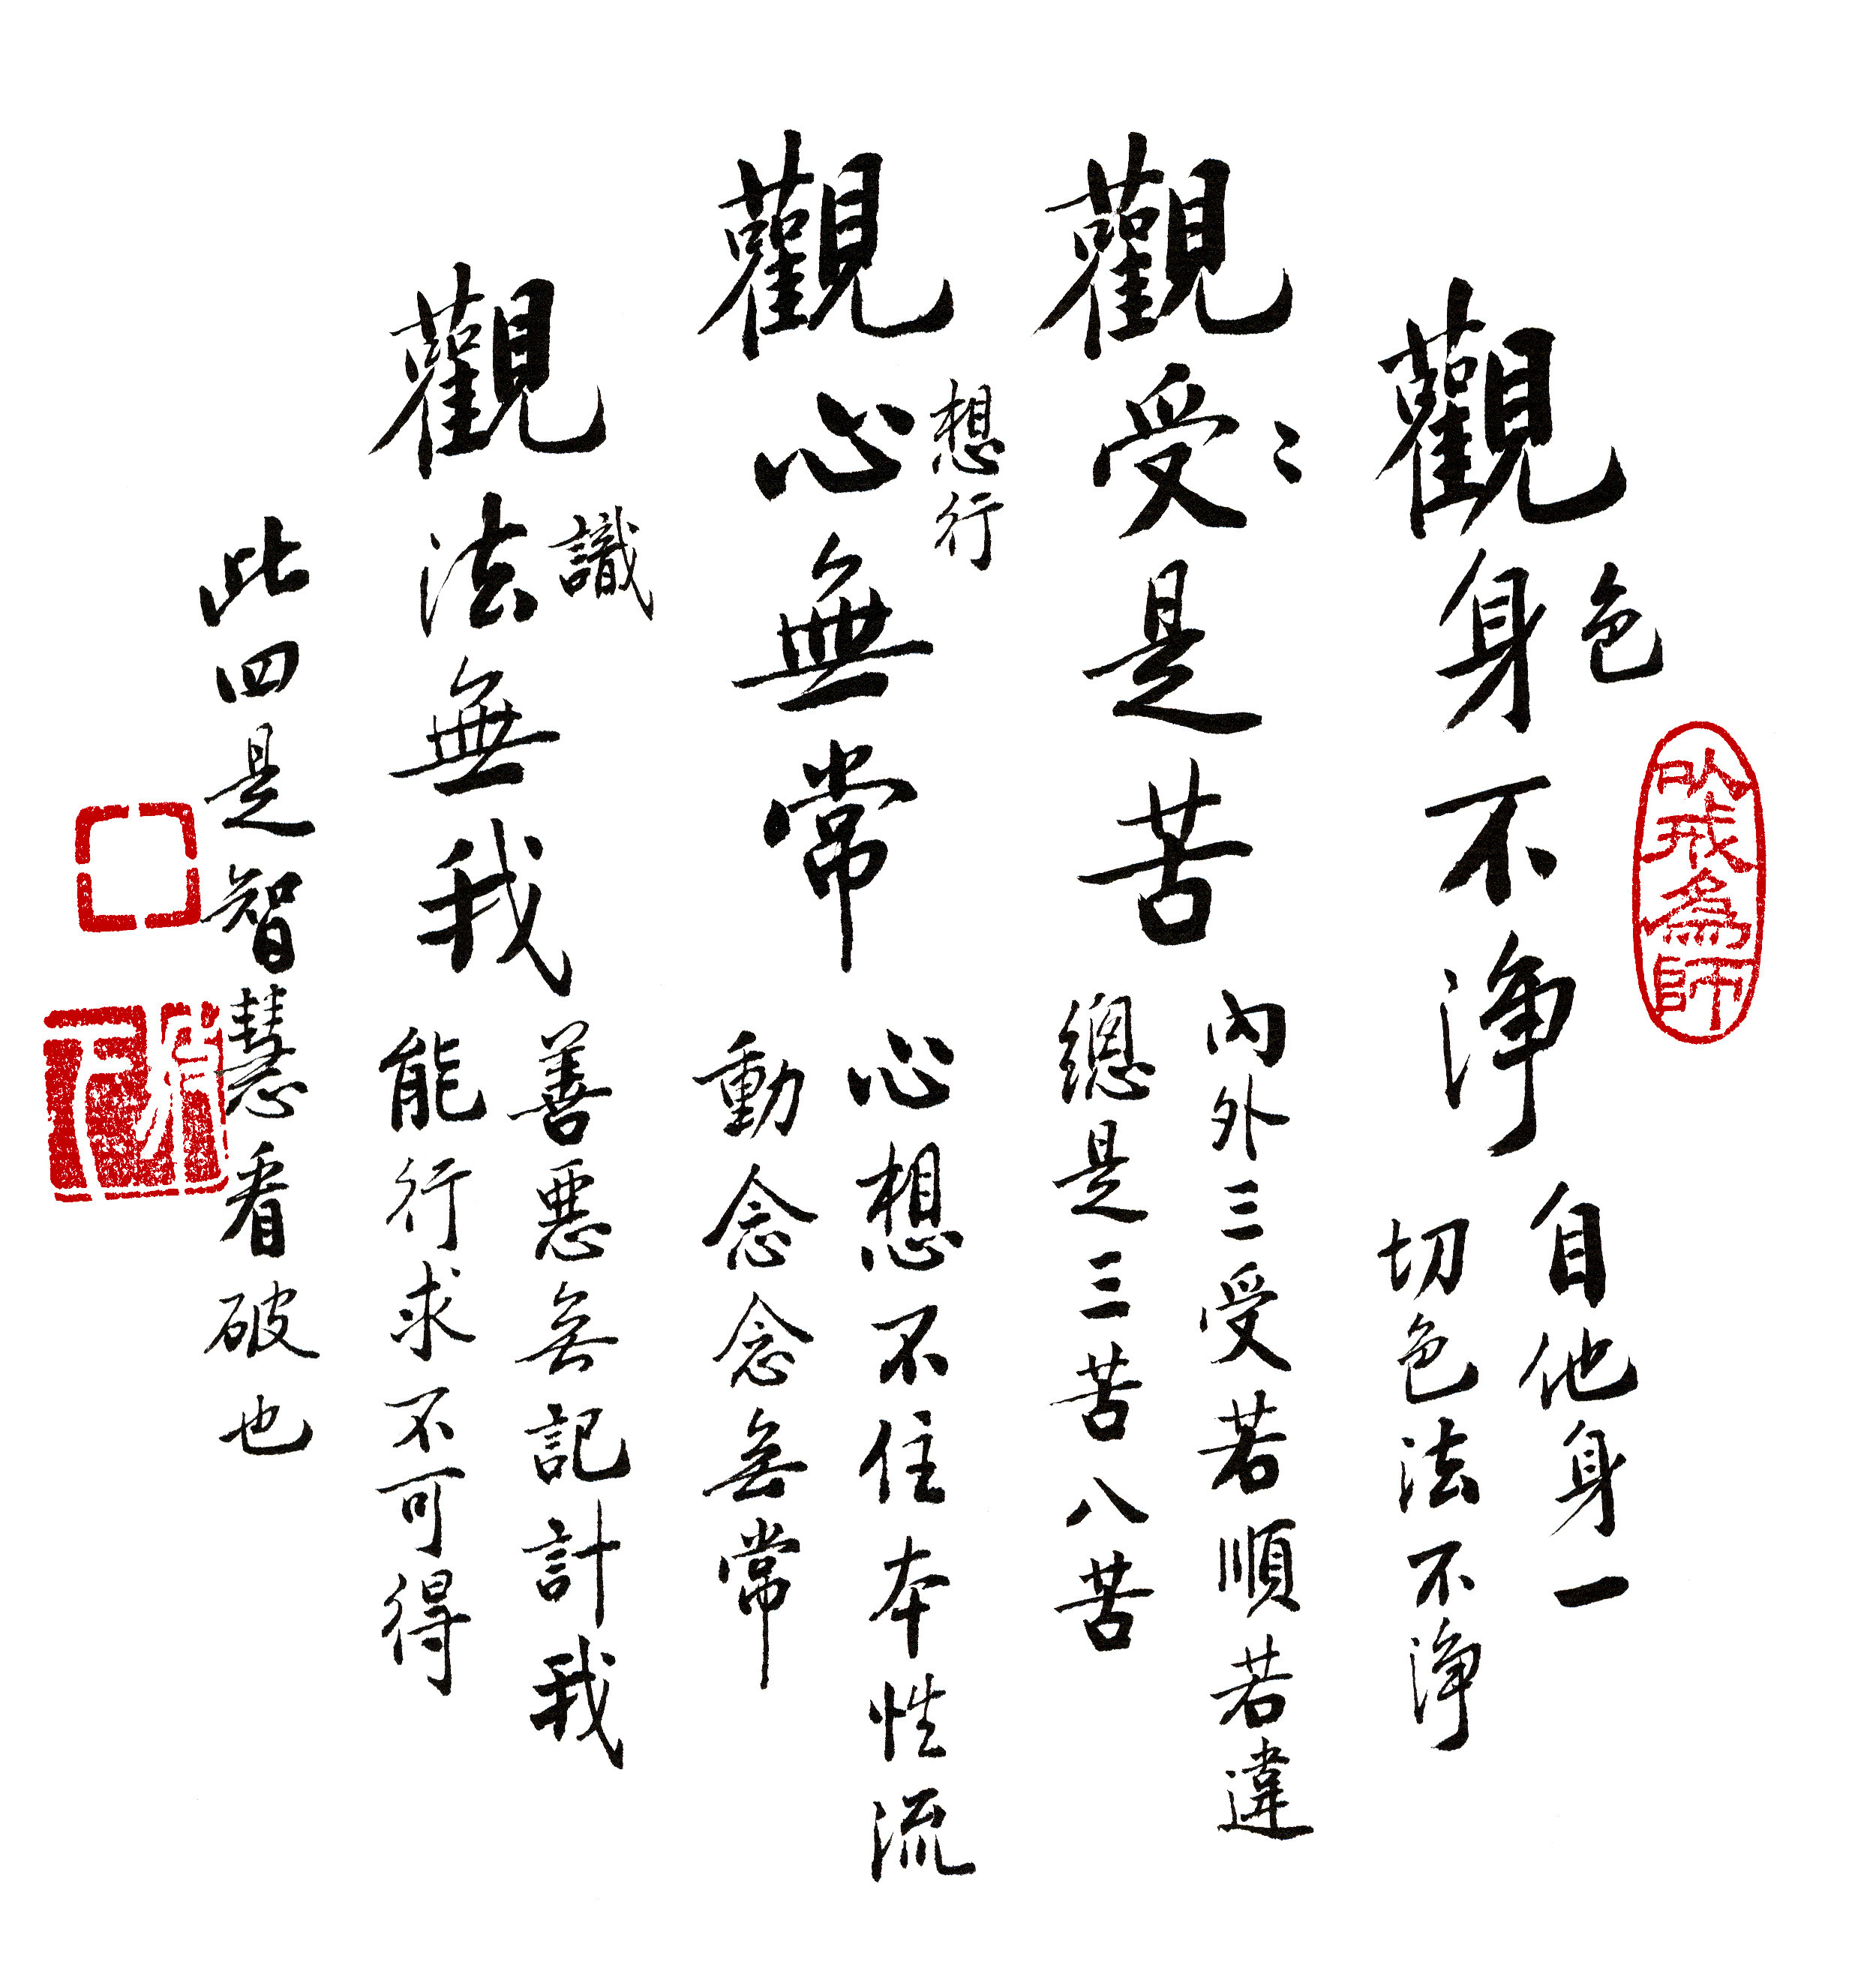 觀身不淨
色
自他身一
切色法不淨
觀受是苦
〻
內外三受若順若違
總是三苦八苦
觀心無常
想行
心想不住本性流
動念念無常
觀法無我
識
善惡無記計我
能行求不可得
此四是智慧看破也
以戒為師